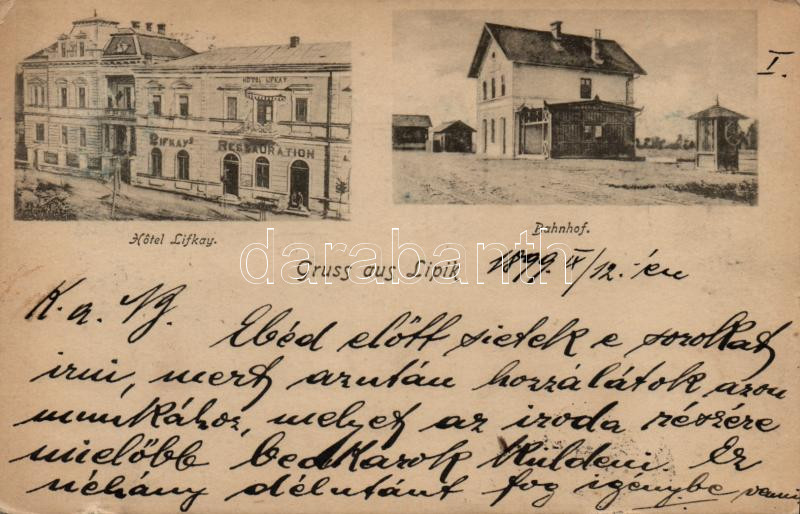 I.
HÔTEL LIFKAY
LIFKAYS RESTAURATION
Hôtel Lifkay.
Bahnhof.
darabanth
Gruss aus Lipik 1899 IX/12.-én
K. a. Ng.
Ebéd előtt sietek e sorokat
irni, mert azután hozzálátok azon
munkához, melyet az iroda részére
mielőbb beakarok küldeni. Ez
néhány délutánt fog igénybe venni